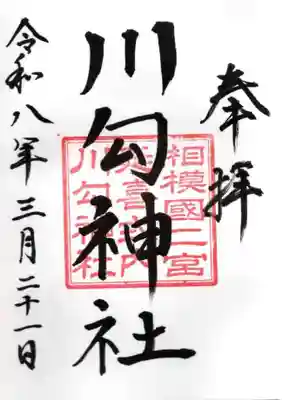 奉拝
相模國二宮
延喜式内
川勾神社
川勾神社
令和八年三月二十一日